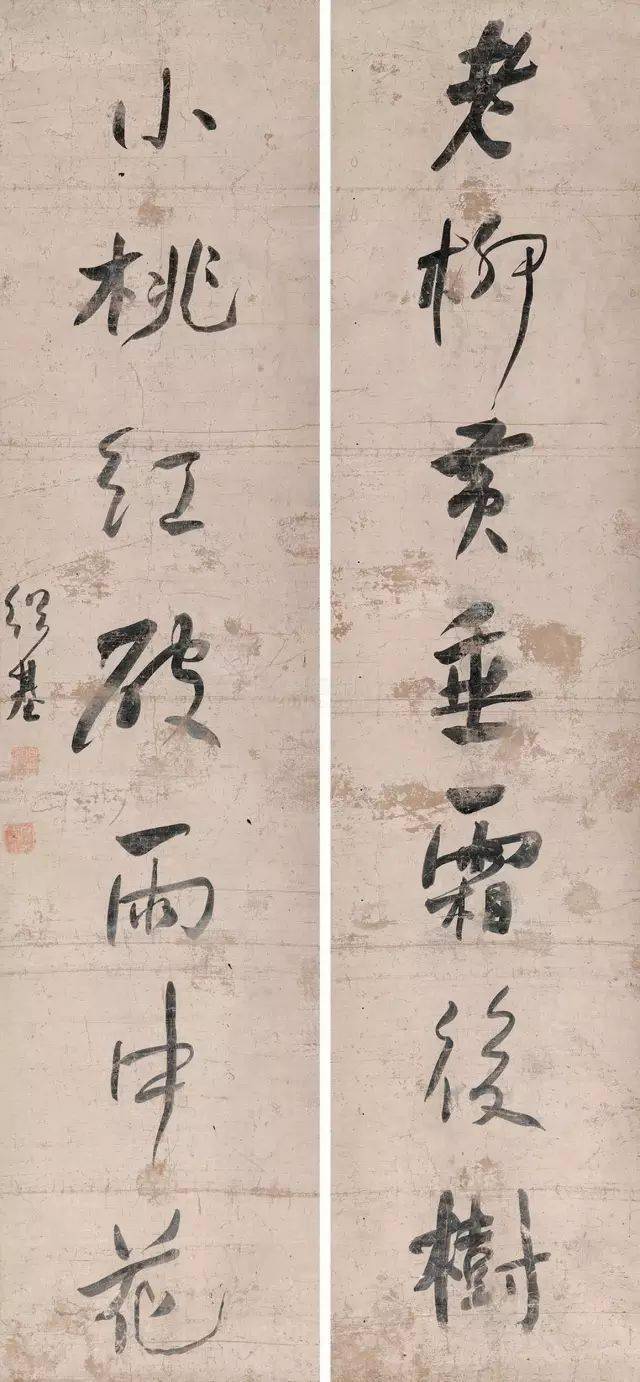 老柳黃垂霜後樹
小桃紅破雨中花